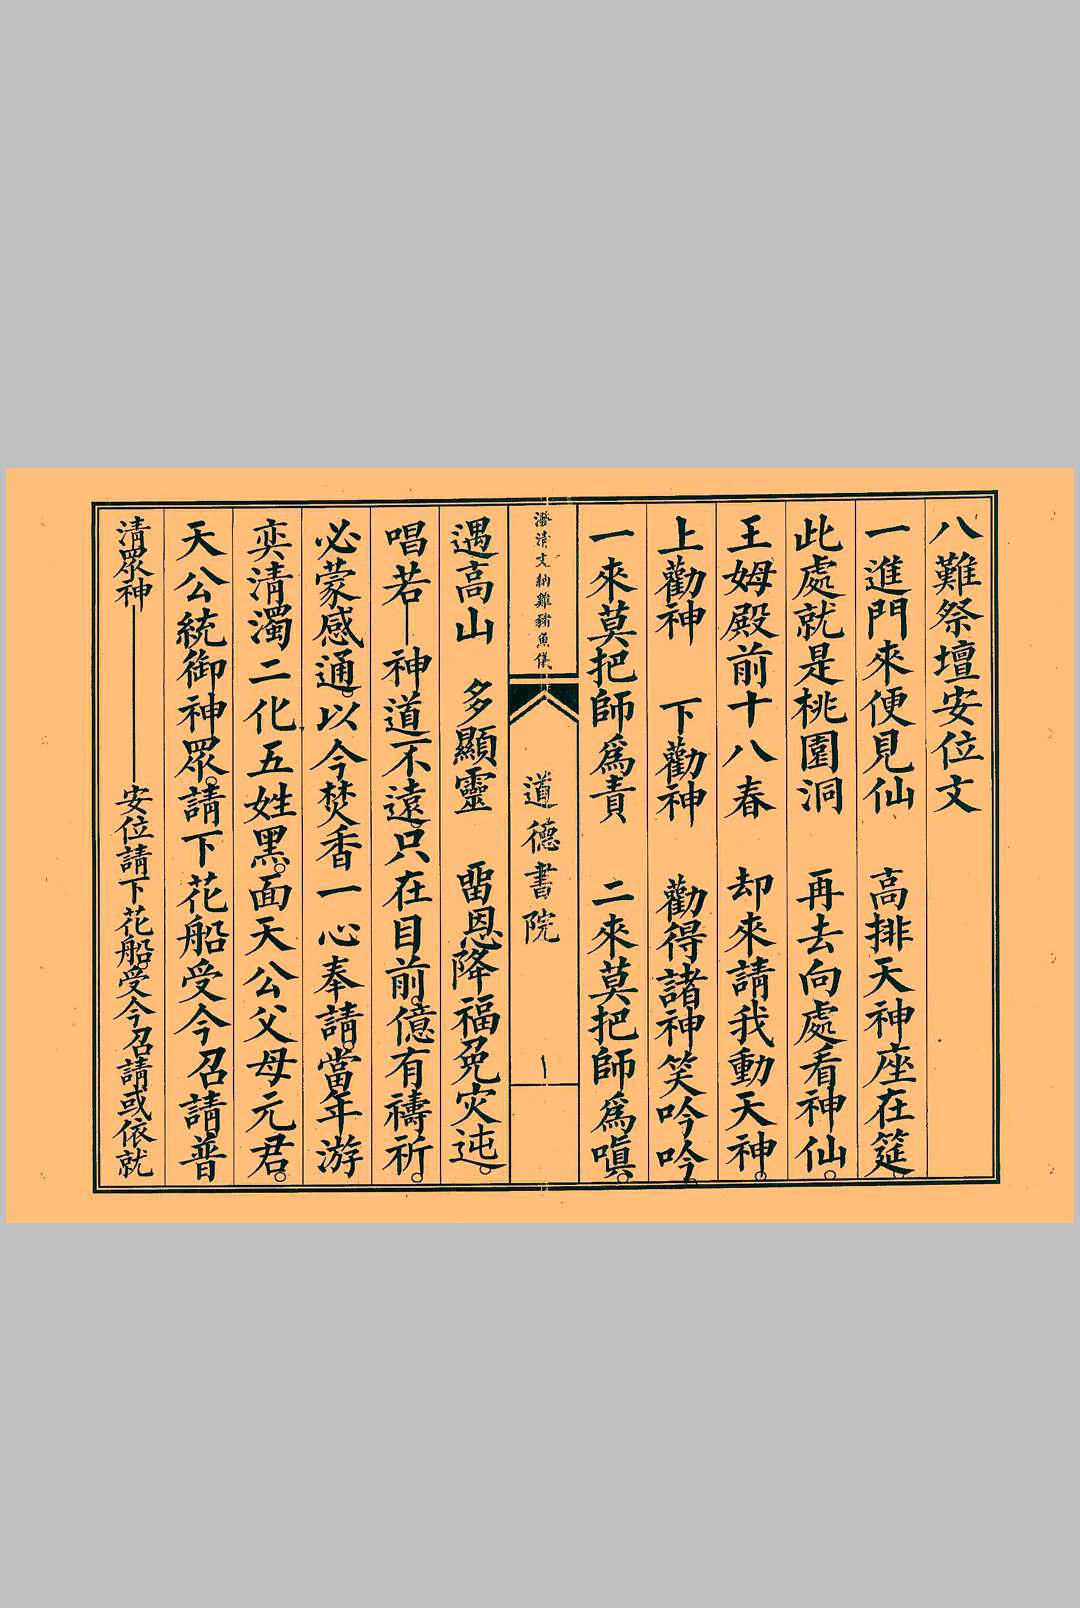 八難祭壇安位文
一進門來便見仙　高排天神座在筵。
此處就是桃園洞　再去向處看神仙。
王姆殿前十八春　却來請我動天神。
上勸神　下勸神　勸得諸神笑吟吟。
一來莫把師爲責　二來莫把師爲嗔。
潘清文納雞豬魚儀
道德書院
一
遇高山　多顯靈　畱恩降福免灾迍。
唱若—神道不遠。只在目前。億有禱祈。
必蒙感通。以今焚香一心奉請。當年游
奕清濁二化五姓黑。面天公父母元君。
天公統御神眾。請下花船受今召請普
清眾神———安位請下花船。受今召請或依就